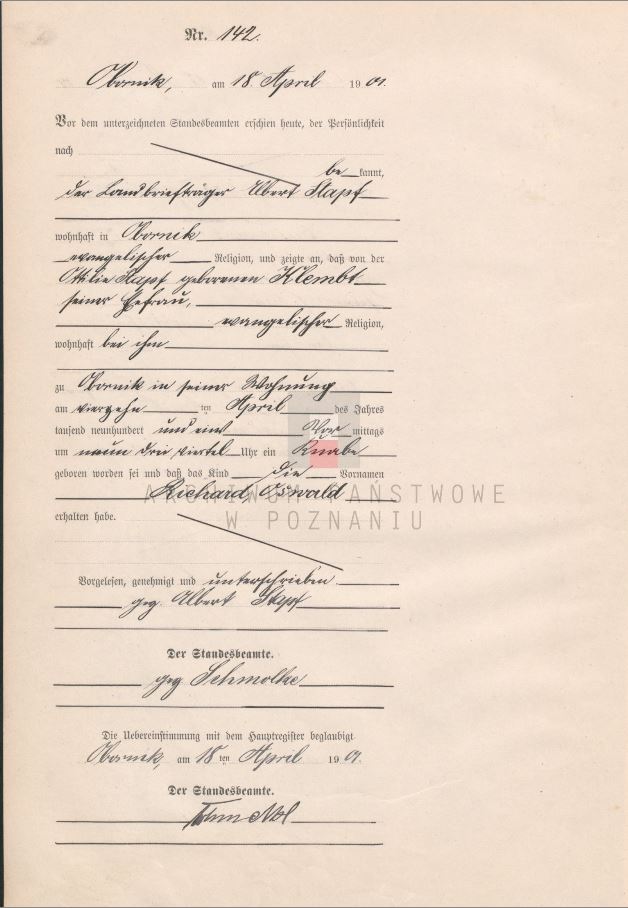 Nr. 142.
Obornik, am 18. April 1901.
Vor dem unterzeichneten Standesbeamten erschien heute, der Persönlichkeit
nach
be kannt,
der Landbriefträger Albert Stapf
wohnhaft in Obornik
evangelischer Religion, und zeigte an, daß von der
Ottilie Stapf geborenen Klembt
seiner Ehefrau,
evangelischer Religion,
wohnhaft bei ihm
zu Obornik in seiner Wohnung
am vierzehn ten April des Jahres
tausend neunhundert und eins Vor mittags
um neun drei viertel Uhr ein Knabe
geboren worden sei und daß das Kind die Vornamen
Richard Oswald
ARCHIWUM PAŃSTWOWE
W POZNANIU
erhalten habe.
Vorgelesen, genehmigt und unterschrieben
gez. Albert Stapf
Der Standesbeamte.
gez Schmolke
Die Uebereinstimmung mit dem Hauptregister beglaubigt
Obornik, am 18 ten April 1901.
Der Standesbeamte.